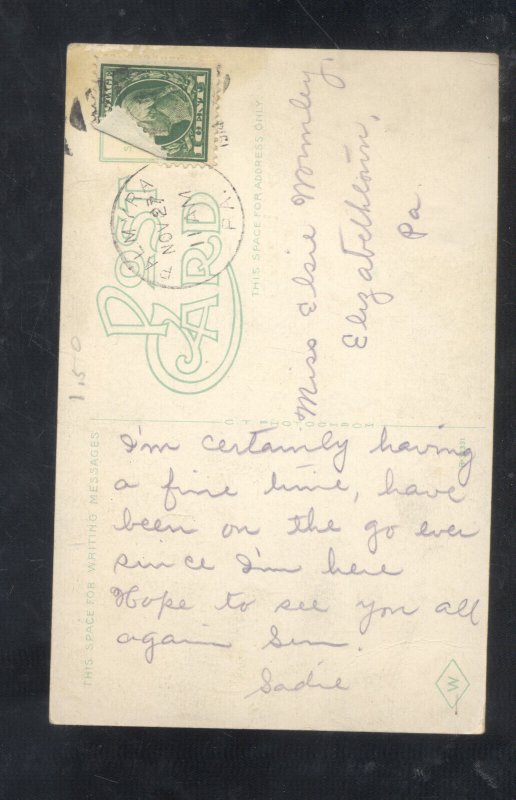 POSTAGE
1 CENT 1
NOV 27
11 AM
1914
PA.
POST
CARD
THIS SPACE FOR ADDRESS ONLY
Miss Elsie Wormley,
Elizabethtown,
Pa.
1.50
THIS SPACE FOR WRITING MESSAGES
I'm certainly having
a fine time, have
been on the go ever
since I'm here
Hope to see you all
again Sun.
Sadie
W